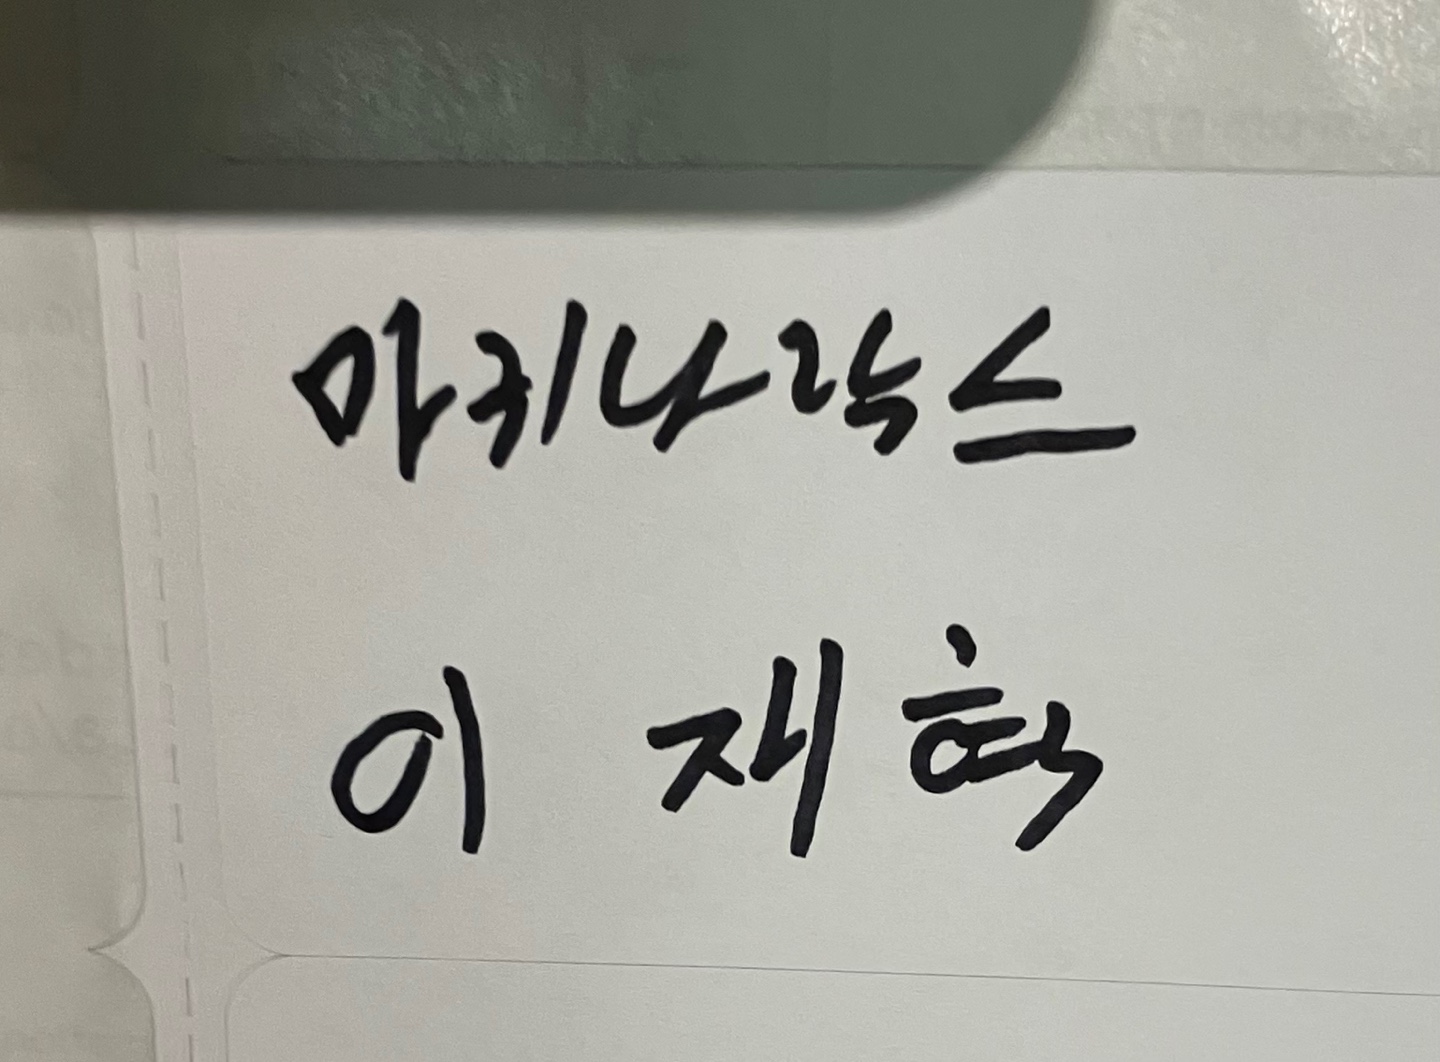 마키나락스
이 재혁